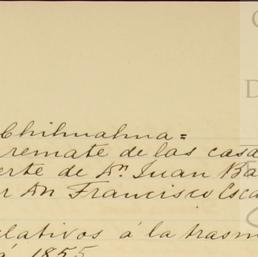 Chihuahua=
remate de las casa
erte de Dn Juan Ba
r Dn Francisco Esca
elativos á la trasm
á 1855